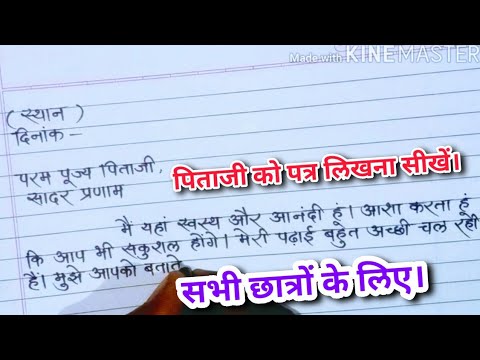 Made with KINEMASTER
(स्थान)
दिनांक -
परम पूज्य पिताजी,
सादर प्रणाम
पिताजी को पत्र लिखना सीखें।
मैं यहां स्वस्थ और आनंदी हूं। आशा करता हूं
कि आप भी सकुशल होंगे। मेरी पढ़ाई बहुत अच्छी चल रही
है। मुझे आपको बताते
सभी छात्रों के लिए।